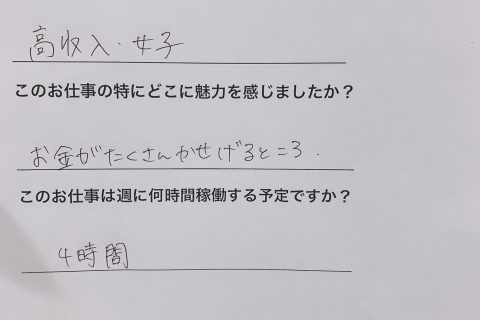 高収入・女子
このお仕事の特にどこに魅力を感じましたか？
お金がたくさんかせげるところ.
このお仕事は週に何時間稼働する予定ですか？
4時間